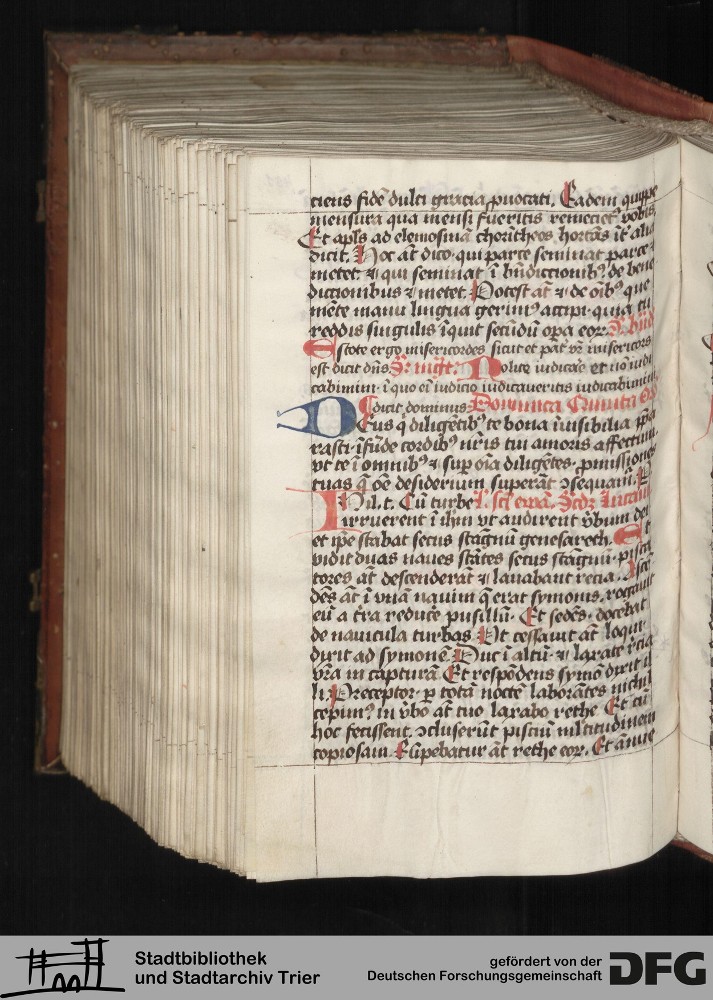 ciens fidē dulci gracia ꝓuocati. Eadem quippe
mensura qua mensi fueritis remecietᷣ vobis.
Et apl̄s ad elemosinā chorīntheos hortās īt̄ alia
dicit. Hoc āt dico· qui parce seminat parce ⁊
metet· ⁊ qui seminat ī bn̄dictionibꝰ de bene
dictionibus ⁊ metet. Potest āt ⁊ de oībꝰ que
mēte manu lingua gerimꝰ accipi· quia tu
reddis singulis īquit secūdū oꝑa eoꝝ.
Estote ergo misericordes sicut et pat̄ vr̄ misericors
est dicit dn̄s Nolite iudicare et nō iudi
cabimini· ī quo eī iudicio iudicaueritis iudicabimini
dicit dominus Dominica Quinta
Deus q̄ diligētibꝰ te bona īuisibilia p̄pa
rasti· īfūde cordibꝰ nr̄is tui amoris affectum
vt te ī omnibꝰ ⁊ suꝑ oīa diligētes· ꝓmissiones
tuas q̄ oē desideriū suꝑāt ↄsequam̄.
In il. t. Cū turbe Lucam
irruerent ī ih̄m vt audirent v̄bum dei
et ip̄e stabat secus stagnū genesareth. Et
vidit duas naues stātes secus stagnū· pisca
tores āt descenderāt ⁊ lauabant recia. Ascē
dēs āt ī vnā nauim q̄ erat symonis. rogauit
eū a t̄ra reduc̄e pusillū· Et sedēs· docebat
de nauicula turbas. Vt cessauit āt loqui·
dixit ad symonē. Duc ī altū· ⁊ laxate recia
vr̄a in capturā. Et respōdens symō dixit il
li. Preceptor· ꝑ totā noctē laborātes nichil
cepimꝰ in v̄bo āt tuo laxabo rethe. Et cū
hoc fecissent. ↄcluserūt pisciū ml̄titudinem
copiosam. Rūpebatur āt rethe eoꝝ. Et ānue
Stadtbibliothek
und Stadtarchiv Trier
gefördert von der
Deutschen Forschungsgemeinschaft DFG